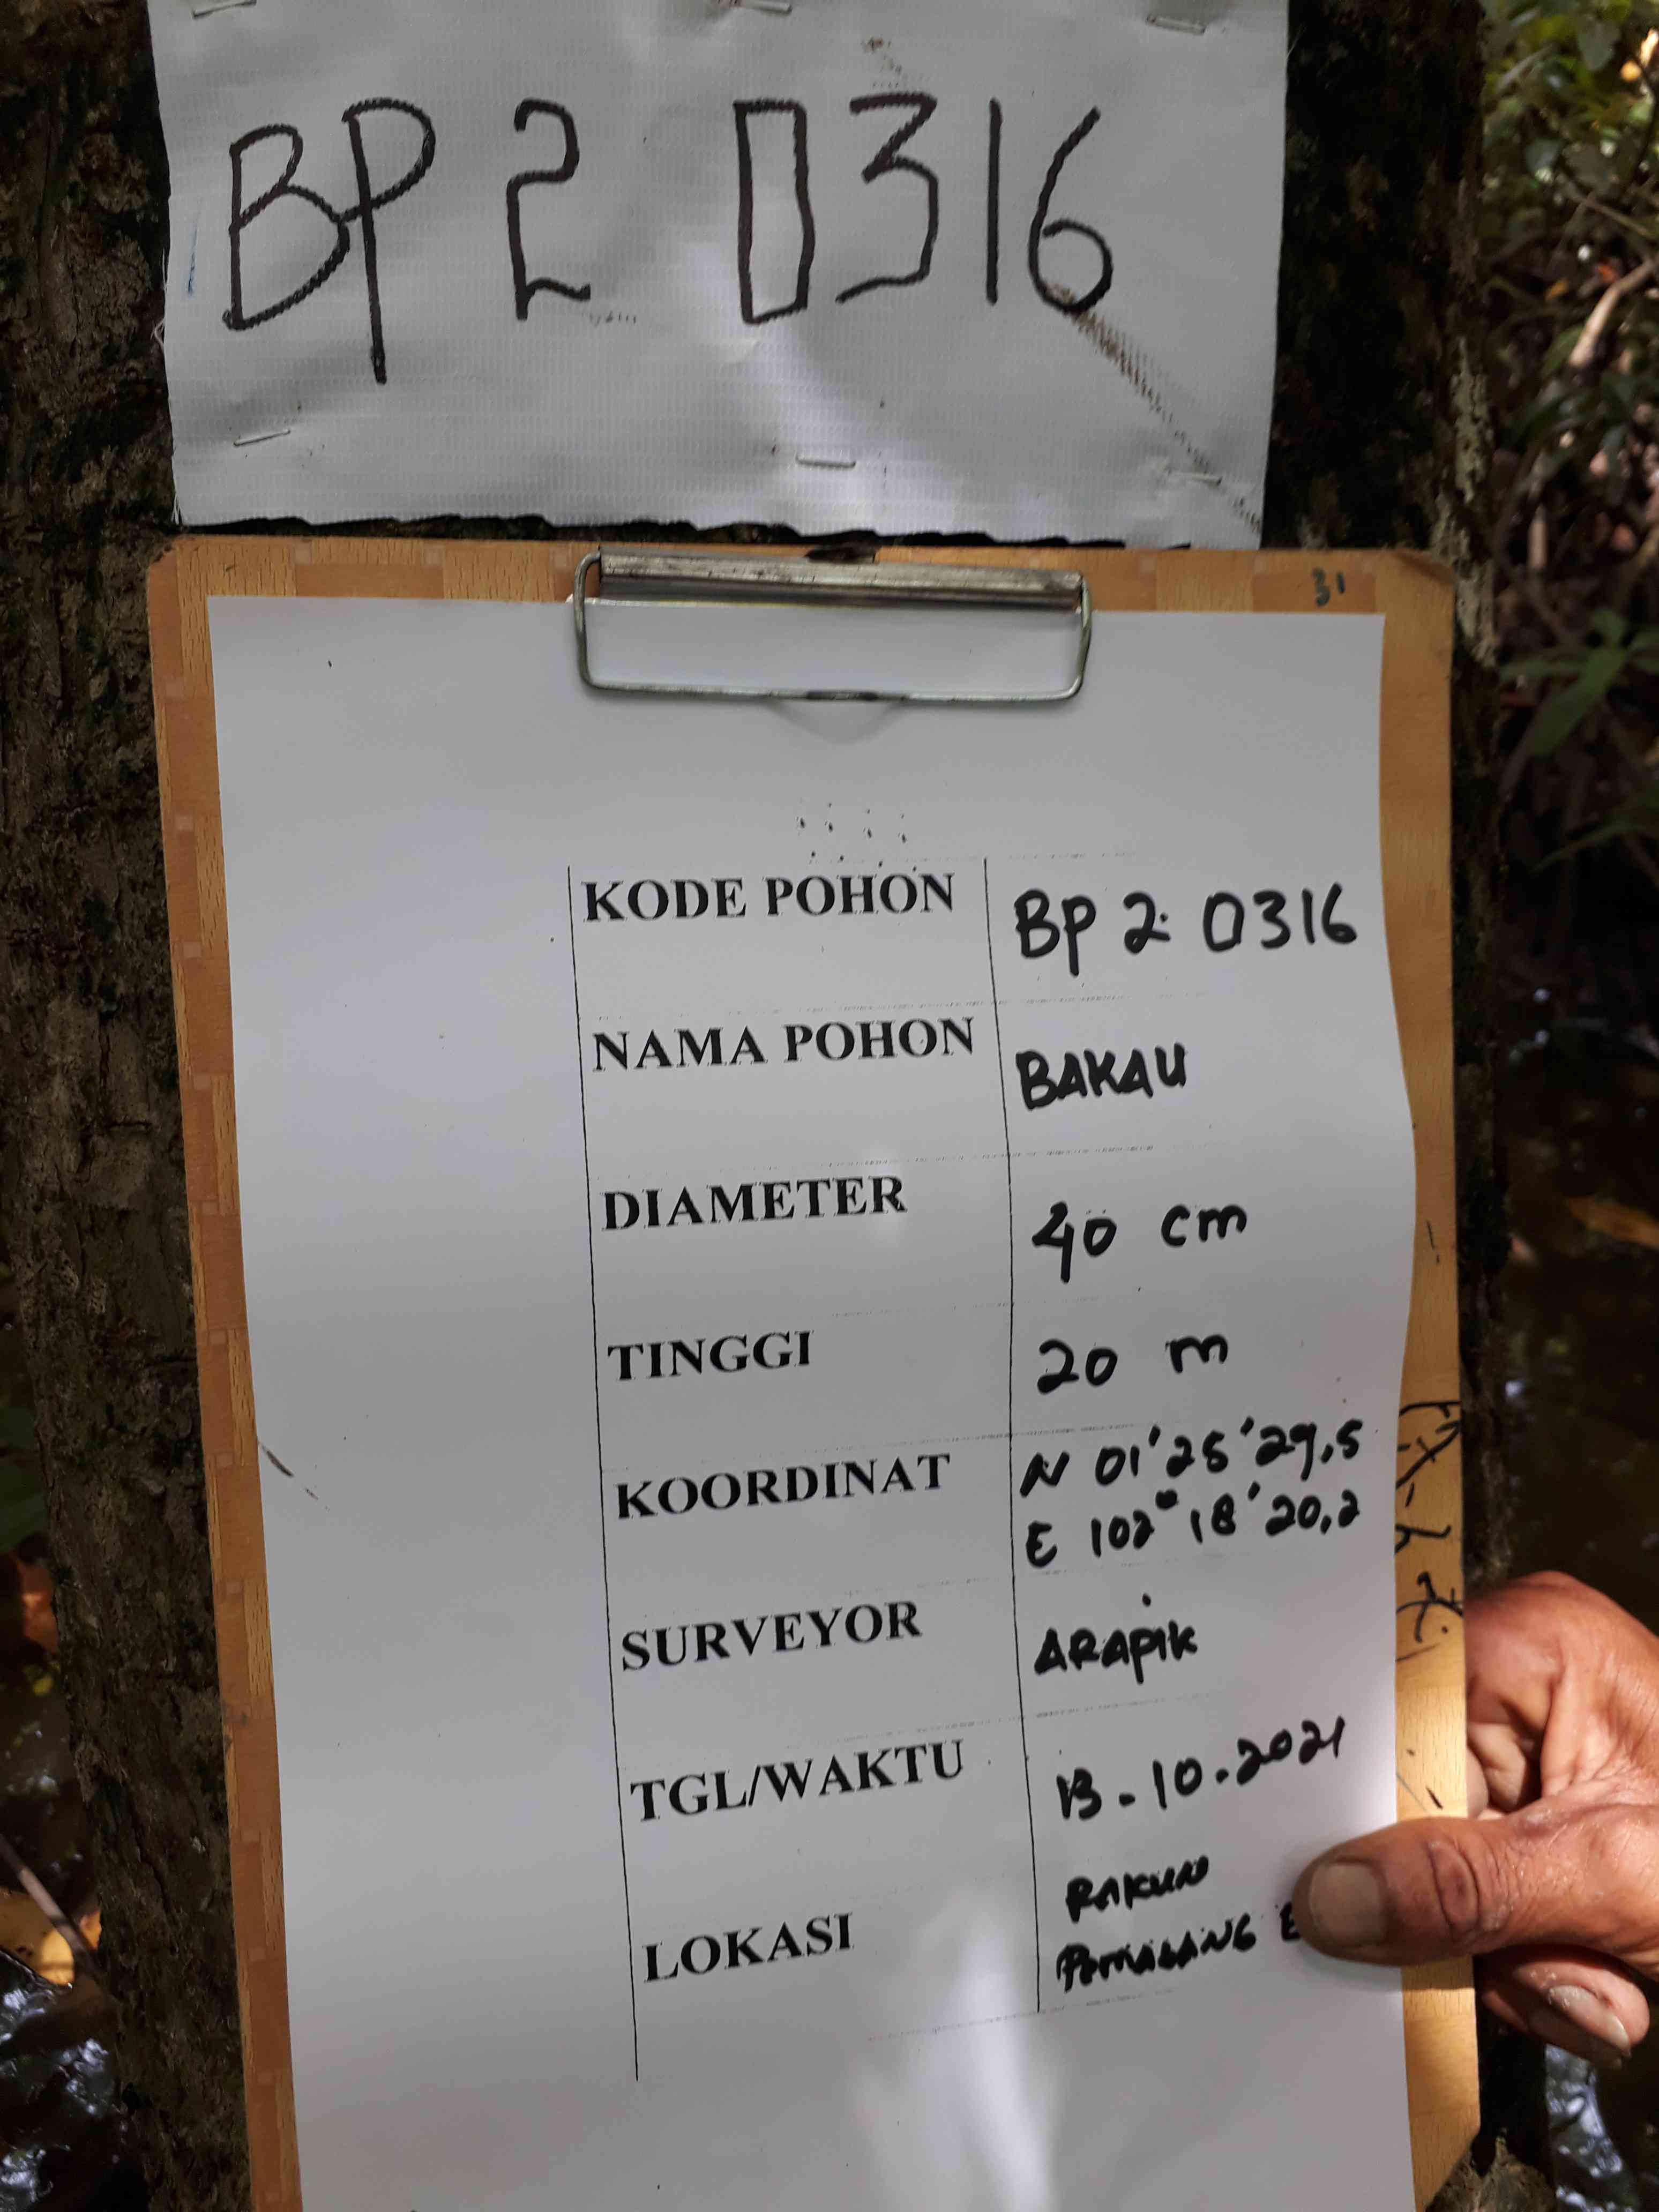 BP 2 0316
31
KODE POHON BP 2 0316
NAMA POHON BAKAU
DIAMETER 40 cm
TINGGI 20 m
KOORDINAT N 01'25'29,5
E 102°18'20,2
SURVEYOR ARAPIK
TGL/WAKTU 13-10.2021
LOKASI RAKUN